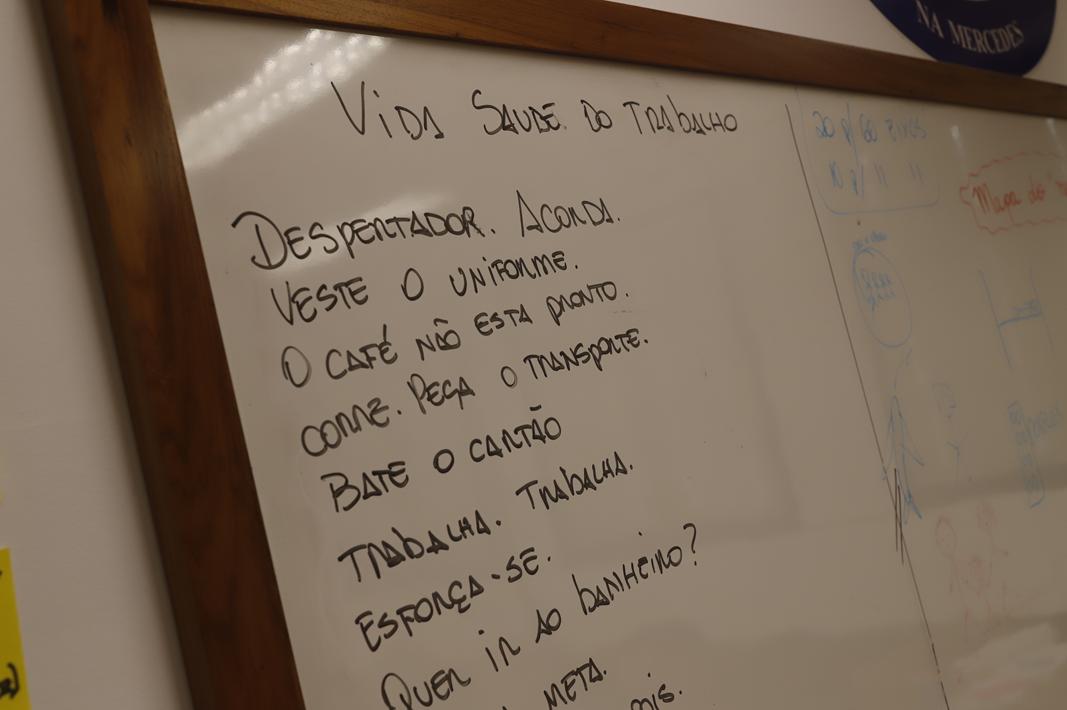 NA MERCEDES
VIDA SAUDE DO TRABALHO
DESPERTADOR. ACORDA.
VESTE O UNIFORME.
O CAFÉ NÃO ESTA PRONTO.
CORRE. PEGA O TRANSPORTE.
BATE O CARTÃO
TRABALHA. TRABALHA.
ESFORÇA-SE.
QUER IR AO BANHEIRO?
META.
20 p/ 60
10 p/ 11 11
Mapa do